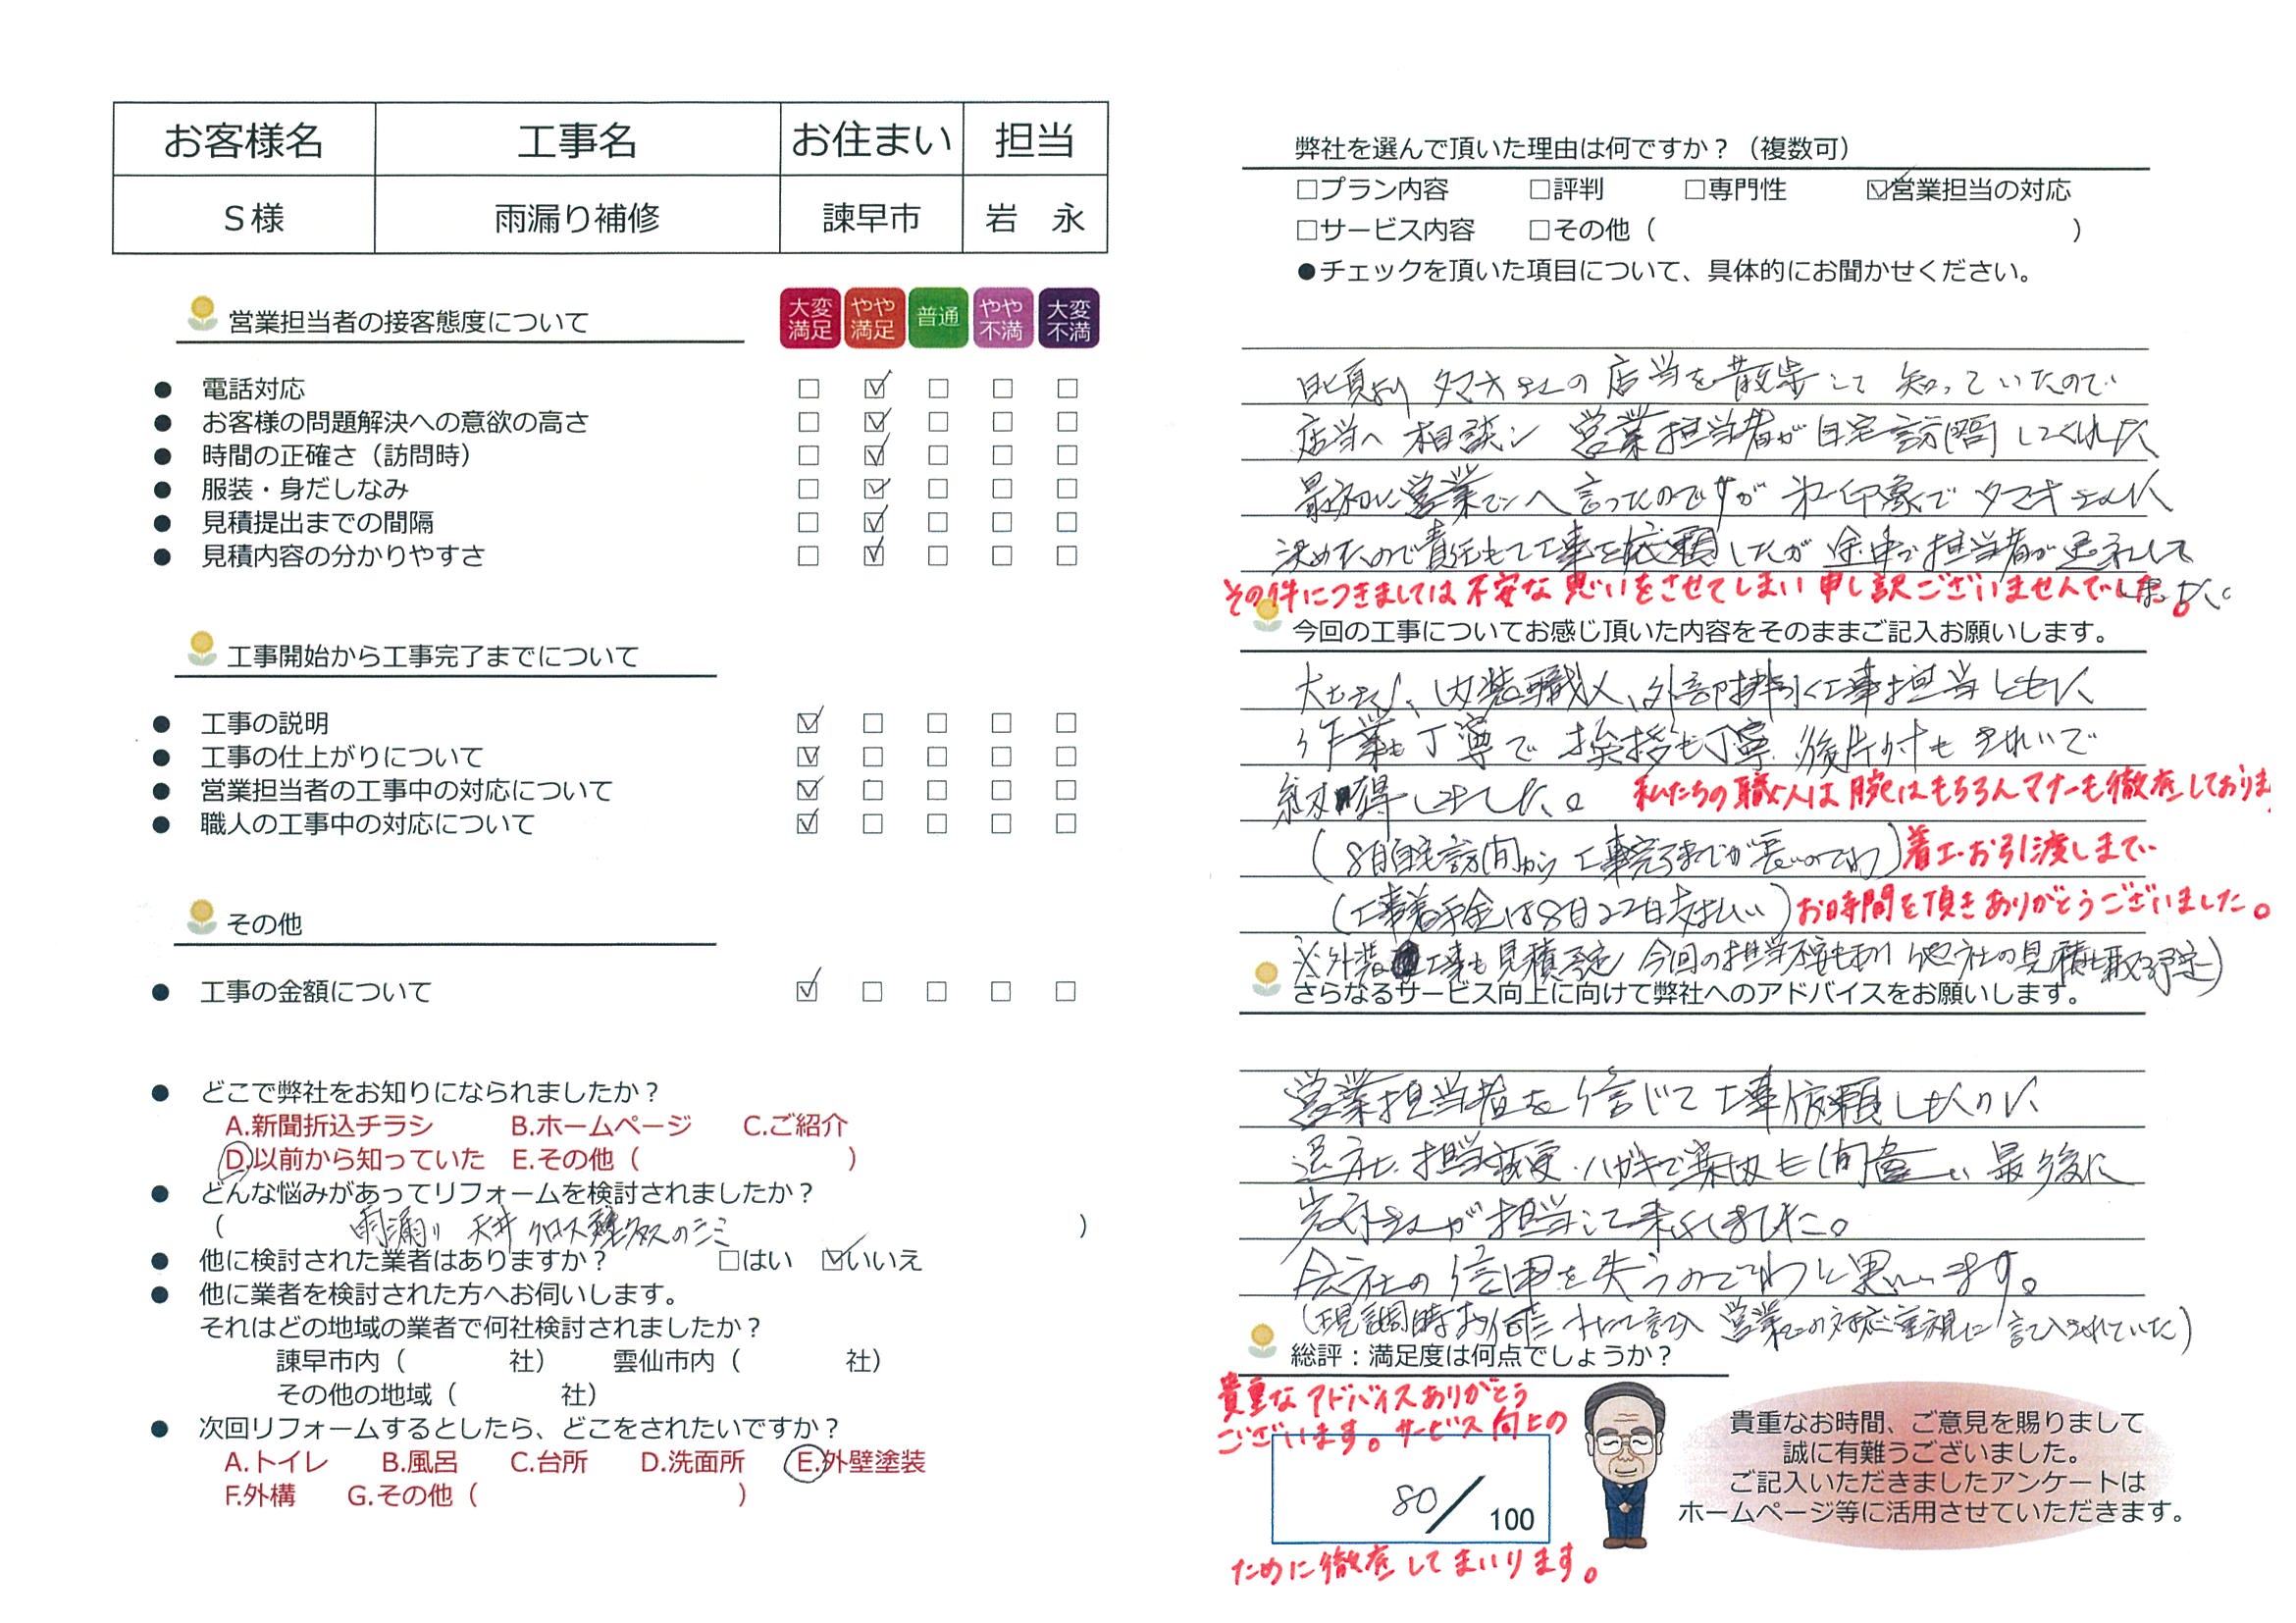 お客様名 工事名 お住まい 担当
S様 雨漏り補修 諫早市 岩 永
営業担当者の接客態度について
大変満足 やや満足 普通 やや不満 大変不満
● 電話対応 □ ☑ □ □ □
● お客様の問題解決への意欲の高さ □ ☑ □ □ □
● 時間の正確さ（訪問時） □ ☑ □ □ □
● 服装・身だしなみ □ ☑ □ □ □
● 見積提出までの間隔 □ ☑ □ □ □
● 見積内容の分かりやすさ □ ☑ □ □ □
工事開始から工事完了までについて
● 工事の説明 ☑ □ □ □ □
● 工事の仕上がりについて ☑ □ □ □ □
● 営業担当者の工事中の対応について ☑ □ □ □ □
● 職人の工事中の対応について ☑ □ □ □ □
その他
● 工事の金額について ☑ □ □ □ □
● どこで弊社をお知りになられましたか？
A.新聞折込チラシ B.ホームページ C.ご紹介
D.以前から知っていた E.その他（ ）
● どんな悩みがあってリフォームを検討されましたか？
（ 雨漏り 天井 クロス のシミ ）
● 他に検討された業者はありますか？ □はい ☑いいえ
● 他に業者を検討された方へお伺いします。
それはどの地域の業者で何社検討されましたか？
諫早市内（ 社） 雲仙市内（ 社）
その他の地域（ 社）
● 次回リフォームするとしたら、どこをされたいですか？
A.トイレ B.風呂 C.台所 D.洗面所 E.外壁塗装
F.外構 G.その他（ ）
弊社を選んで頂いた理由は何ですか？（複数可）
□プラン内容 □評判 □専門性 ☑営業担当の対応
□サービス内容 □その他（ ）
●チェックを頂いた項目について、具体的にお聞かせください。
日頃より タマキさんの 店当を散歩して 知っていたので
店当へ 相談し 営業担当者が自宅訪問してくれた
最初に営業マンへ言ったのですが 第一印象で タマキさんに
決めたので責任もて工事を依頼したが 途中で担当者が退社して
しまった。
その件につきましては不安な思いをさせてしまい申し訳ございませんでした。
今回の工事についてお感じ頂いた内容をそのままご記入お願いします。
大工さん、内装職人、外部排水工事担当ともに
作業も丁寧で 挨拶も丁寧 後片付も きれいで
納得しました。 私たちの職人は腕はもちろんマナーも徹底しておりま
(8月自宅訪問から 工事完了までが長いのでわ) 着工・お引渡しまで
(工事着手金は8月22日支払い) お時間を頂きありがとうございました。
※外装工事も見積予定 今回の担当 他社の見積も取る予定)
さらなるサービス向上に向けて弊社へのアドバイスをお願いします。
営業担当者を信じて工事依頼したのに
退社、担当変更・ハガキで も間違い 最後に
岩永さんが担当して来ました。
会社の信用を失うのでわと思います。
(現調時お伺 にて記入 営業マンの対応重視に記入されていた)
総評：満足度は何点でしょうか？
貴重なアドバイスありがとう
ございます。サービス向上の
80/100
ために徹底してまいります。
貴重なお時間、ご意見を賜りまして
誠に有難うございました。
ご記入いただきましたアンケートは
ホームページ等に活用させていただきます。